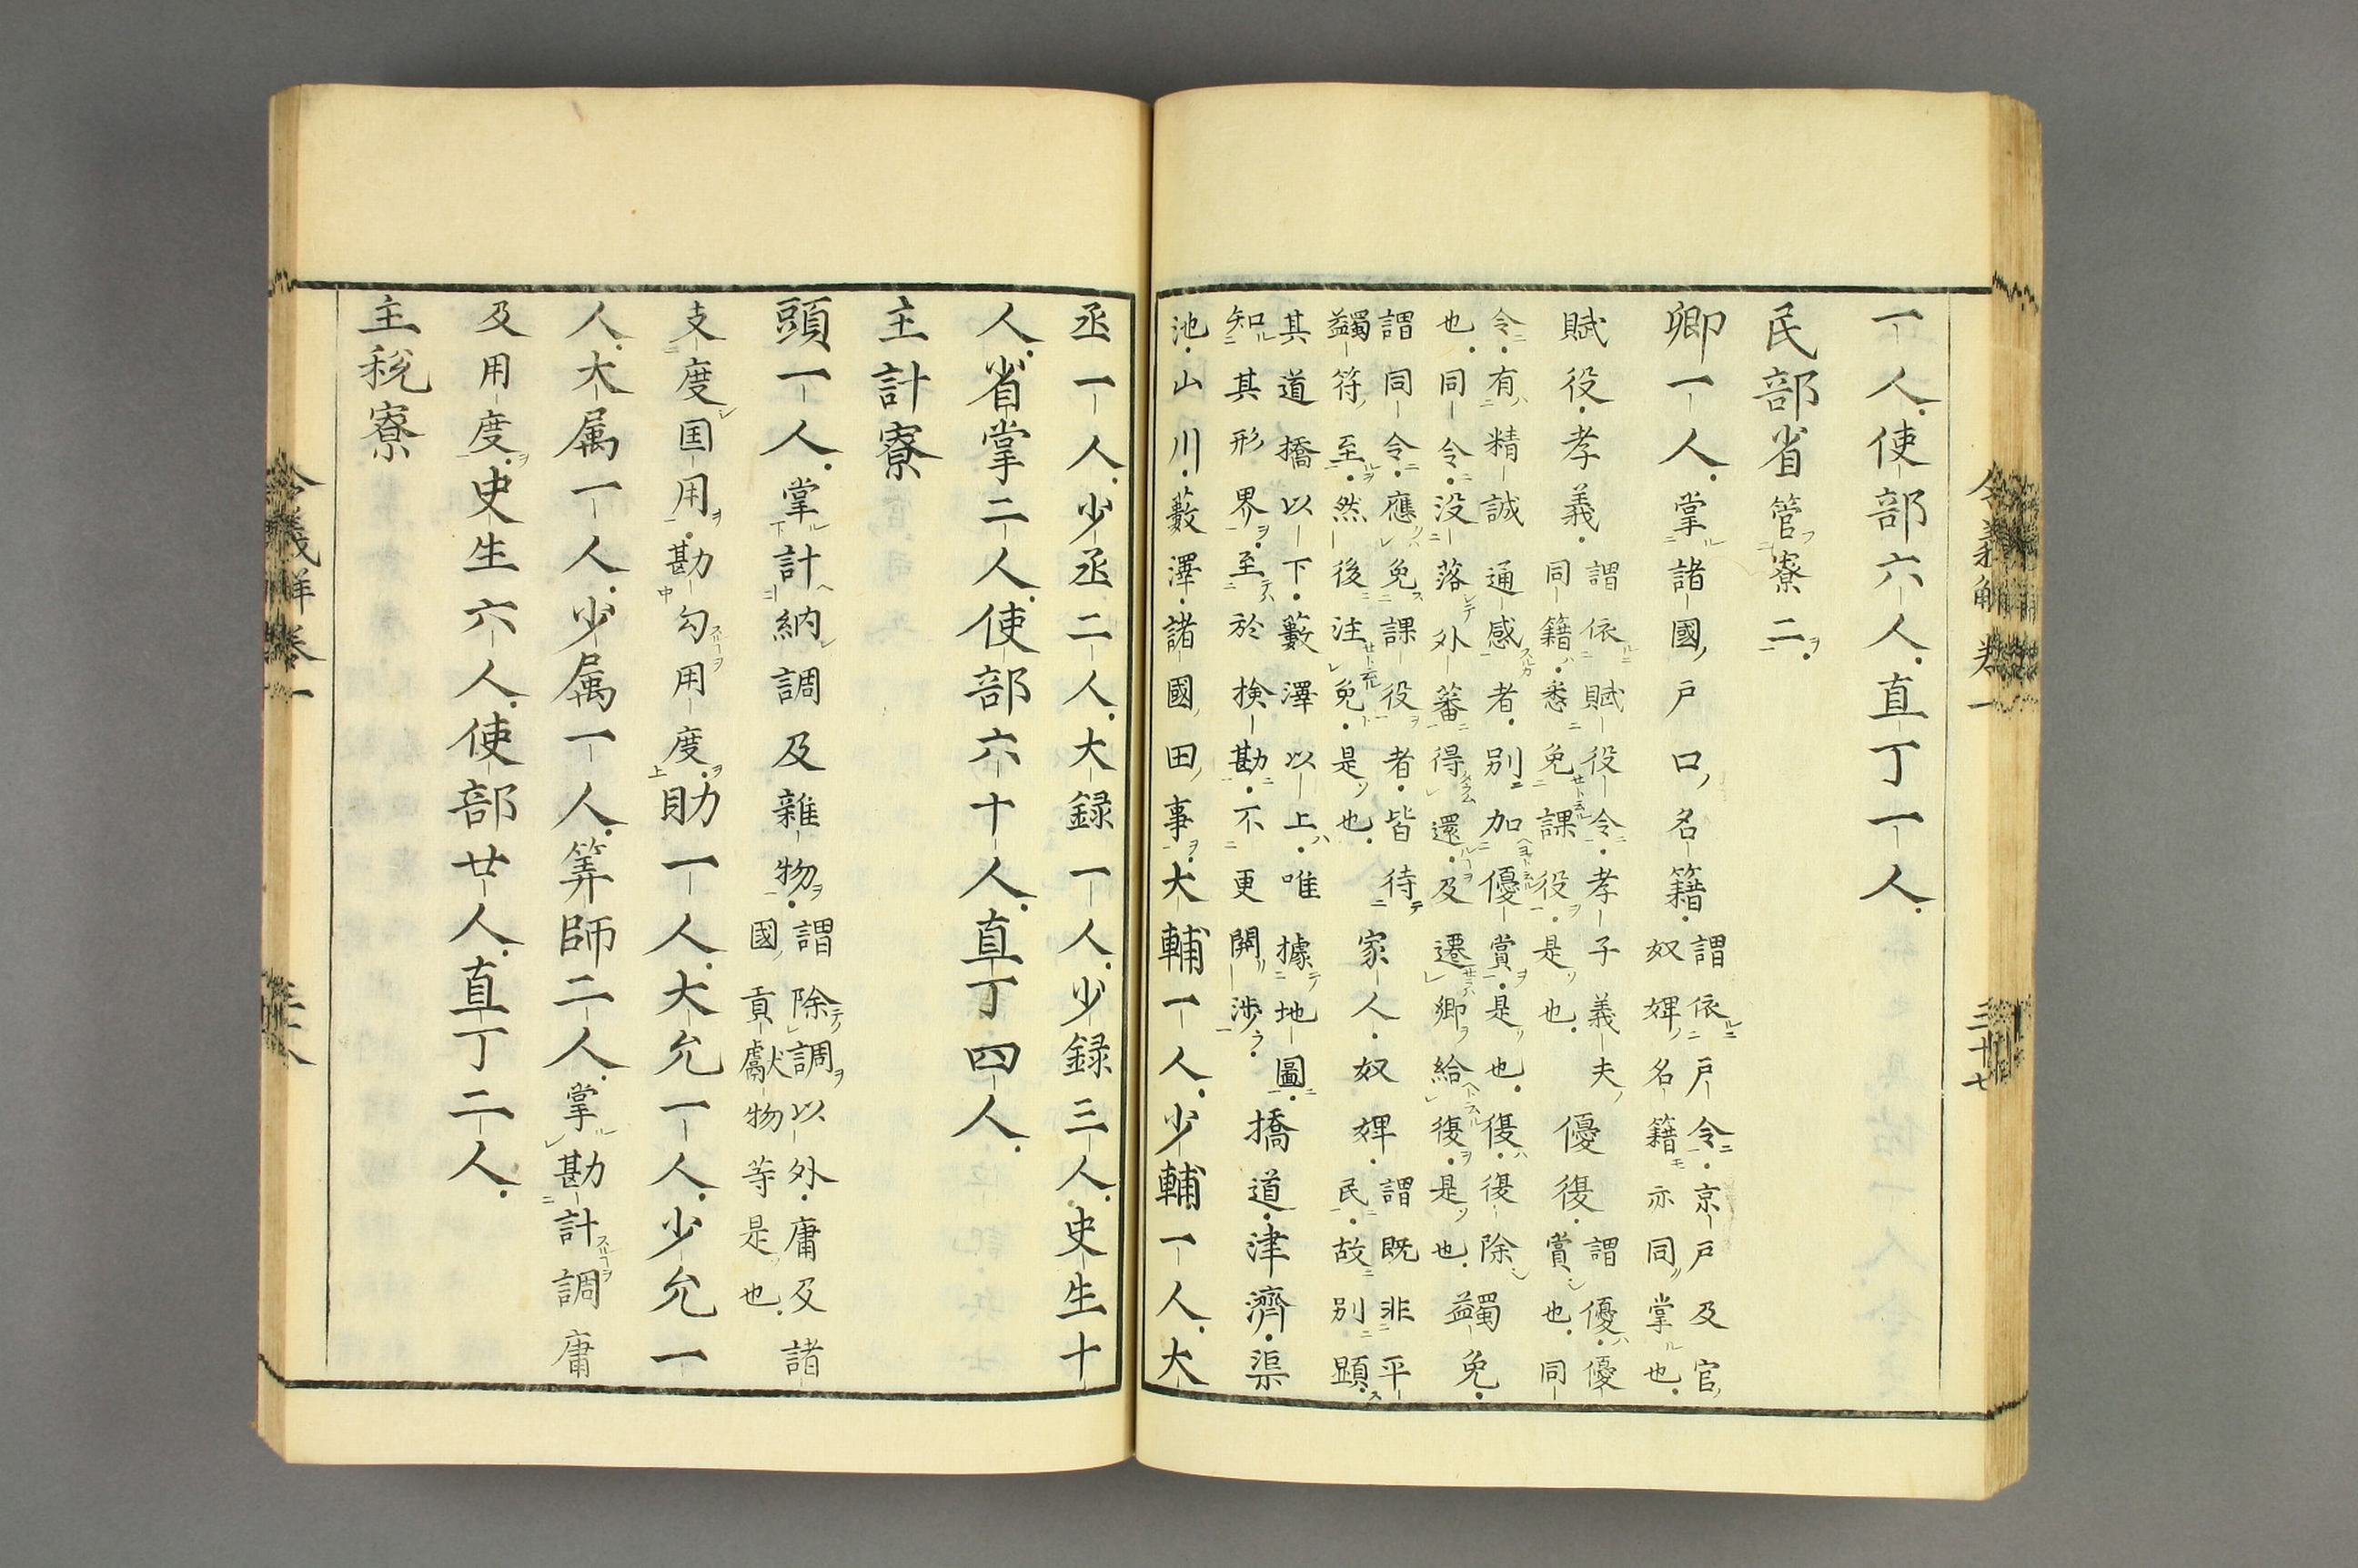 一人使部六人直丁一人
民部省管寮二
卿一人掌諸國戸口名籍謂依戸令京戸及官奴婢名籍亦同掌也
賦役孝義謂依賦役令孝子義夫同籍悉免課役是也優復謂優優賞也同
令有精誠通感者別加優賞是也復復除也同令没落外蕃得還及遷卿給復是也蠲免
謂同令應免課役者皆待蠲符至然後注免是也家人奴婢謂既非平民故別顕
其道橋以下藪澤以上唯據地圖知其形界至於検勘不更關渉橋道津濟渠
池山川藪澤諸國田事大輔一人少輔一人大
丞一人少丞二人大録一人少録三人史生十
人省掌二人使部六十人直丁四人
主計寮
頭一人掌計納調及雜物謂除調以外庸及諸國貢獻物等是也
支度国用勘勾用度助一人大允一人少允一
人大属一人少属一人筭師二人掌勘計調庸
及用度史生六人使部廿人直丁二人
主税寮
令義解巻一
三十七